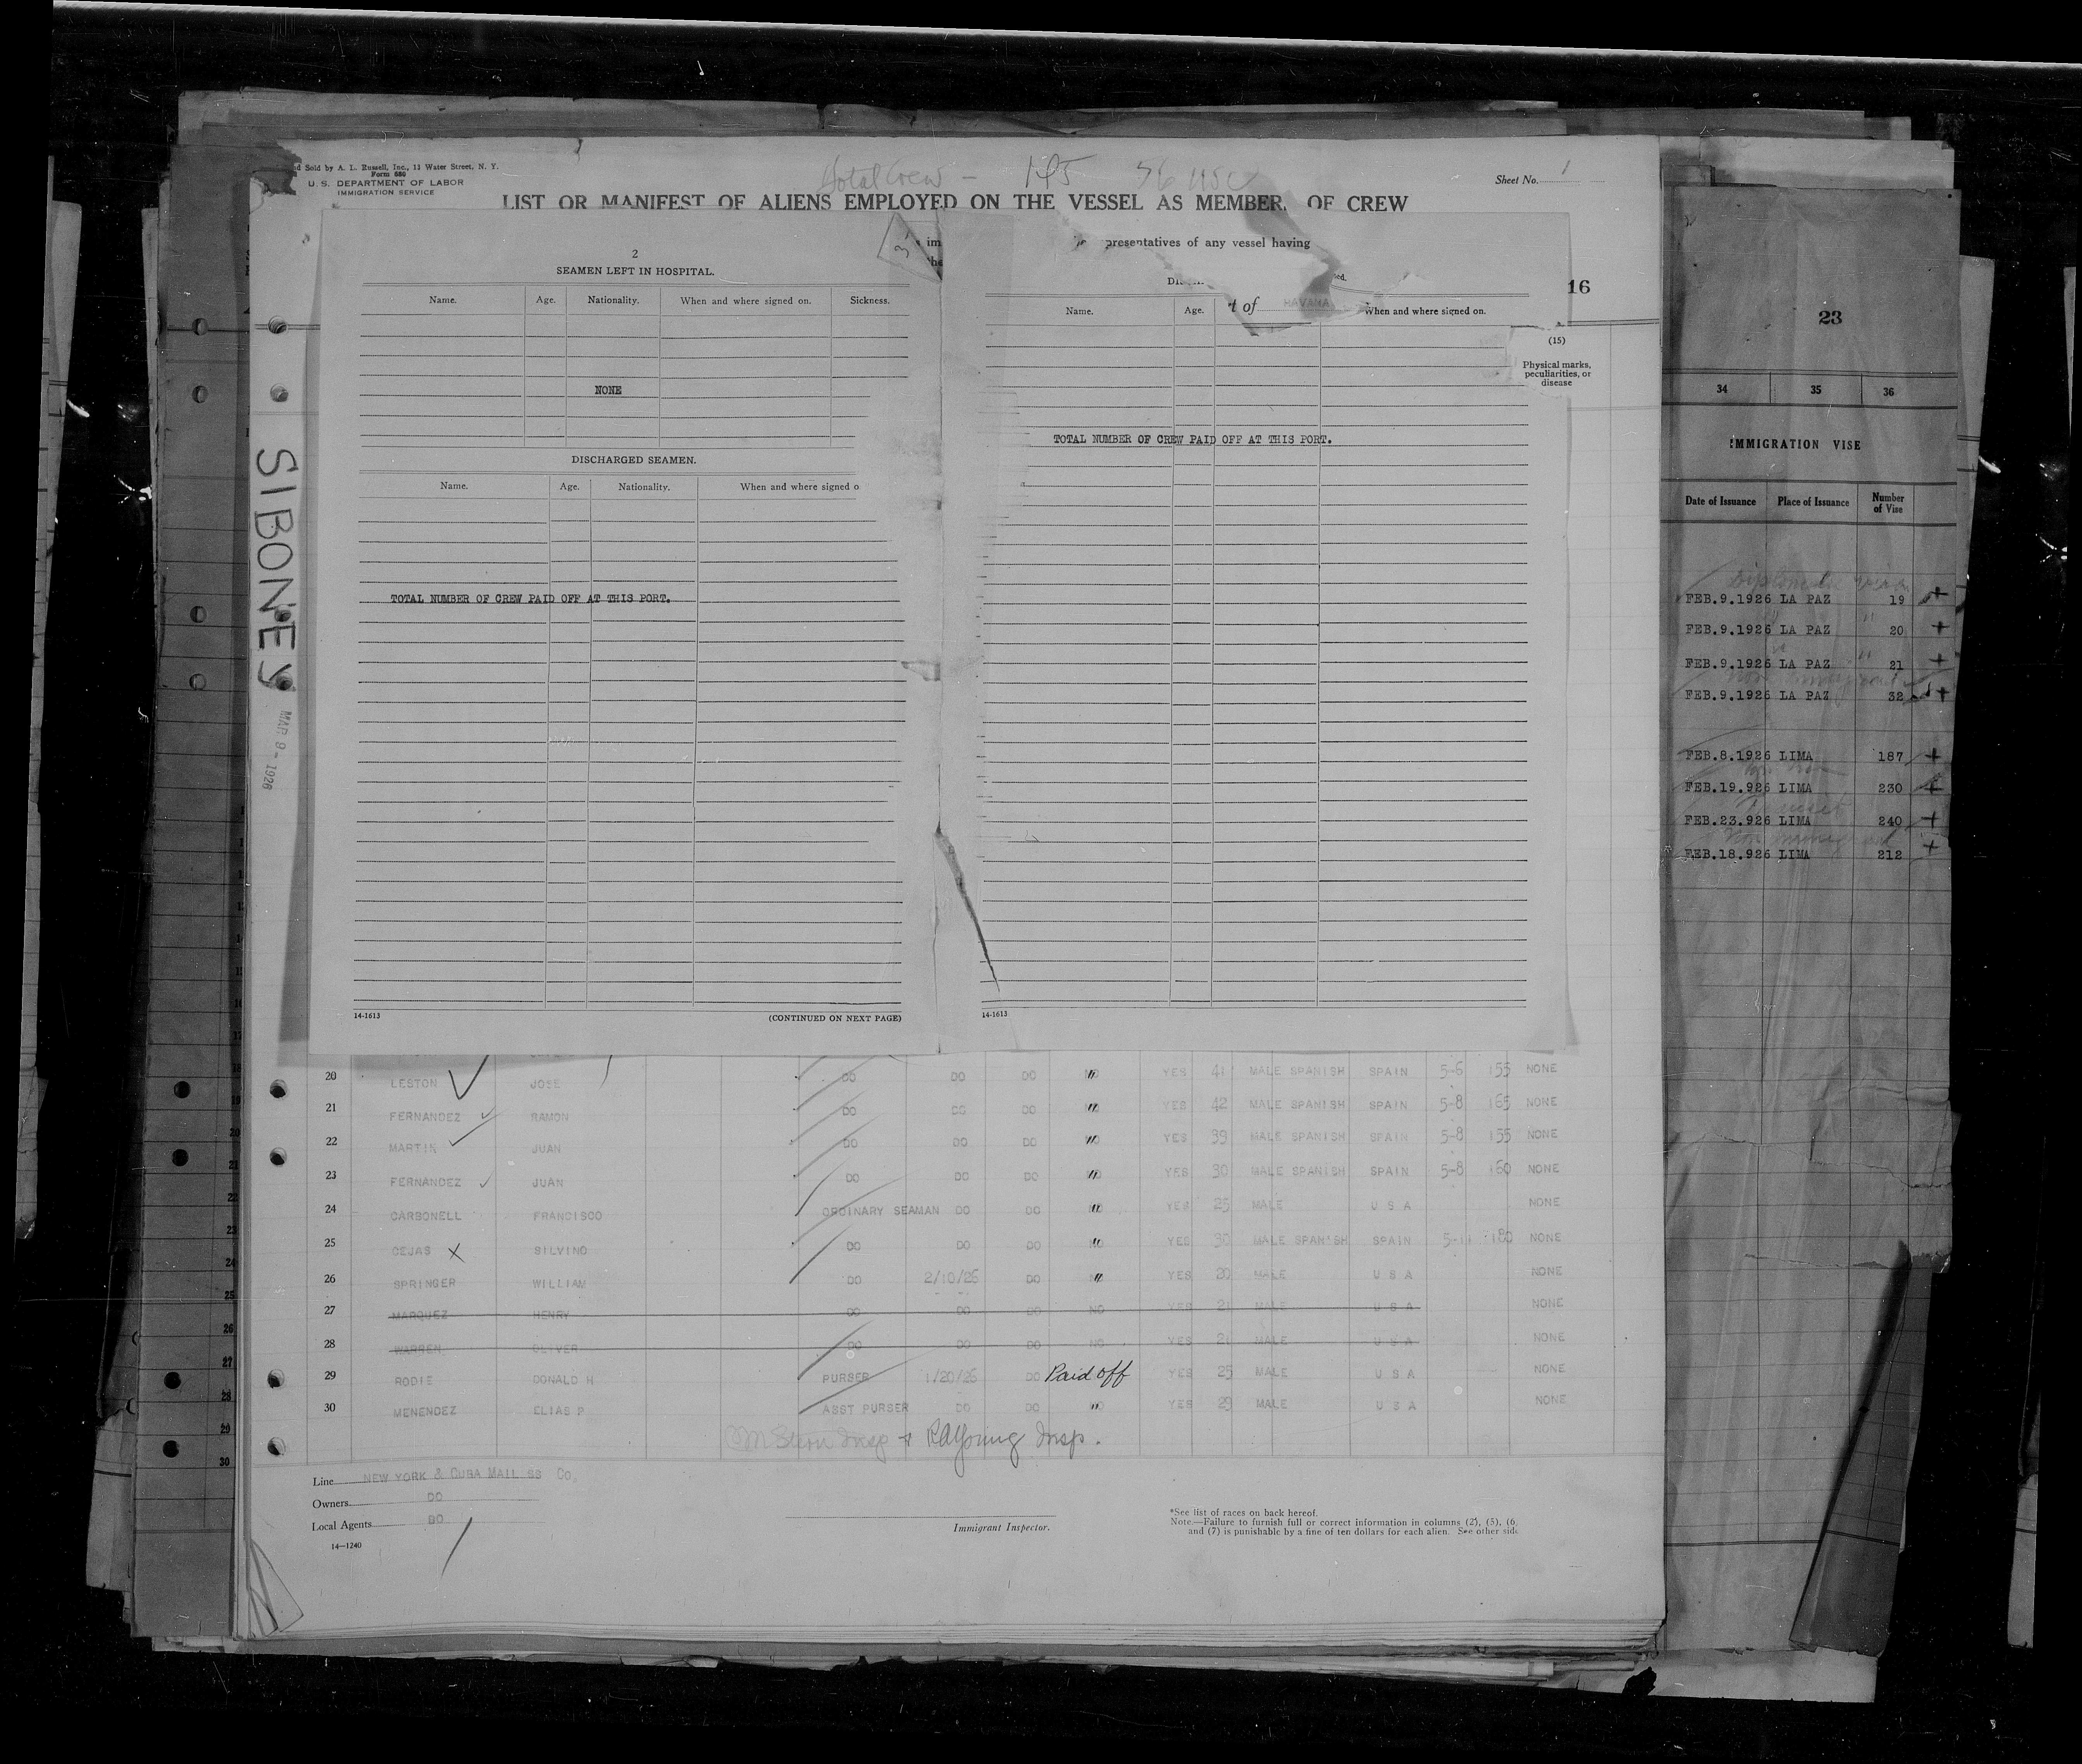 d Sold by A. L. Russell, Inc., 11 Water Street, N. Y.
Form 680
U. S. DEPARTMENT OF LABOR
IMMIGRATION SERVICE
Total Crew –
Sheet No. 1
LIST OR MANIFEST OF ALIENS EMPLOYED ON THE VESSEL AS MEMBER OF CREW
presentatives of any vessel having
16
t of HAVANA
SIBONEY
MAR 9 - 1926
3
2
SEAMEN LEFT IN HOSPITAL.
Name. Age. Nationality. When and where signed on. Sickness.
NONE
DISCHARGED SEAMEN.
Name. Age. Nationality. When and where signed o
TOTAL NUMBER OF CREW PAID OFF AT THIS PORT.
14-1613
(CONTINUED ON NEXT PAGE)
Name. Age. When and where signed on.
TOTAL NUMBER OF CREW PAID OFF AT THIS PORT.
14-1613
(15)
Physical marks,
peculiarities, or
disease
20 LESTON JOSE DO DO DO " YES 41 MALE SPANISH SPAIN 5-6 155 NONE
21 FERNANDEZ RAMON DO DO DO " YES 42 MALE SPANISH SPAIN 5-8 165 NONE
22 MARTIN JUAN DO DO DO " YES 39 MALE SPANISH SPAIN 5-8 155 NONE
23 FERNANDEZ JUAN DO DO DO " YES 30 MALE SPANISH SPAIN 5-8 160 NONE
24 CARBONELL FRANCISCO ORDINARY SEAMAN DO DO " YES 25 MALE U S A NONE
25 CEJAS X SILVINO DO DO DO " YES 30 MALE SPANISH SPAIN 180 NONE
26 SPRINGER WILLIAM DO 2/10/26 DO " YES 20 MALE U S A NONE
27 MARQUEZ HENRY DO DO DO NO YES 21 MALE U S A NONE
28 WARREN OLIVER DO DO DO NO YES 21 MALE U S A NONE
29 RODIE DONALD H PURSER 1/20/26 DO Paid off YES 25 MALE U S A NONE
30 MENENDEZ ELIAS P ASST PURSER DO DO " YES 29 MALE U S A NONE
Insp + RAYoung Insp.
Line NEW YORK & CUBA MAIL SS CO.
Owners DO
Local Agents DO
14—1240
Immigrant Inspector.
*See list of races on back hereof.
Note.—Failure to furnish full or correct information in columns (2), (5), (6,
and (7) is punishable by a fine of ten dollars for each alien. See other side
23
34 35 36
IMMIGRATION VISE
Date of Issuance Place of Issuance Number of Vise
FEB.9.1926 LA PAZ 19
FEB.9.1926 LA PAZ " 20
FEB.9.1926 LA PAZ " 21
FEB.9.1926 LA PAZ 32
FEB.8.1926 LIMA 187
FEB.19.926 LIMA 230
FEB.23.926 LIMA 240
FEB.18.926 LIMA 212